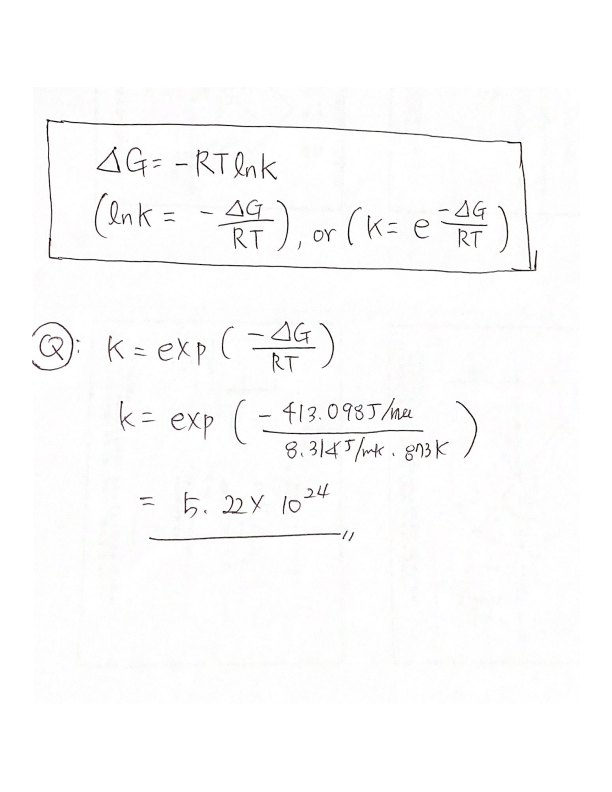 ΔG = -RT ln k
(ln k = - ΔG/RT), or (k = e^(-ΔG/RT))
Q: k = exp (-ΔG/RT)
k = exp (-413.098 J/mol / 8.314 J/mk · 873 K)
= 5.22 × 10^24